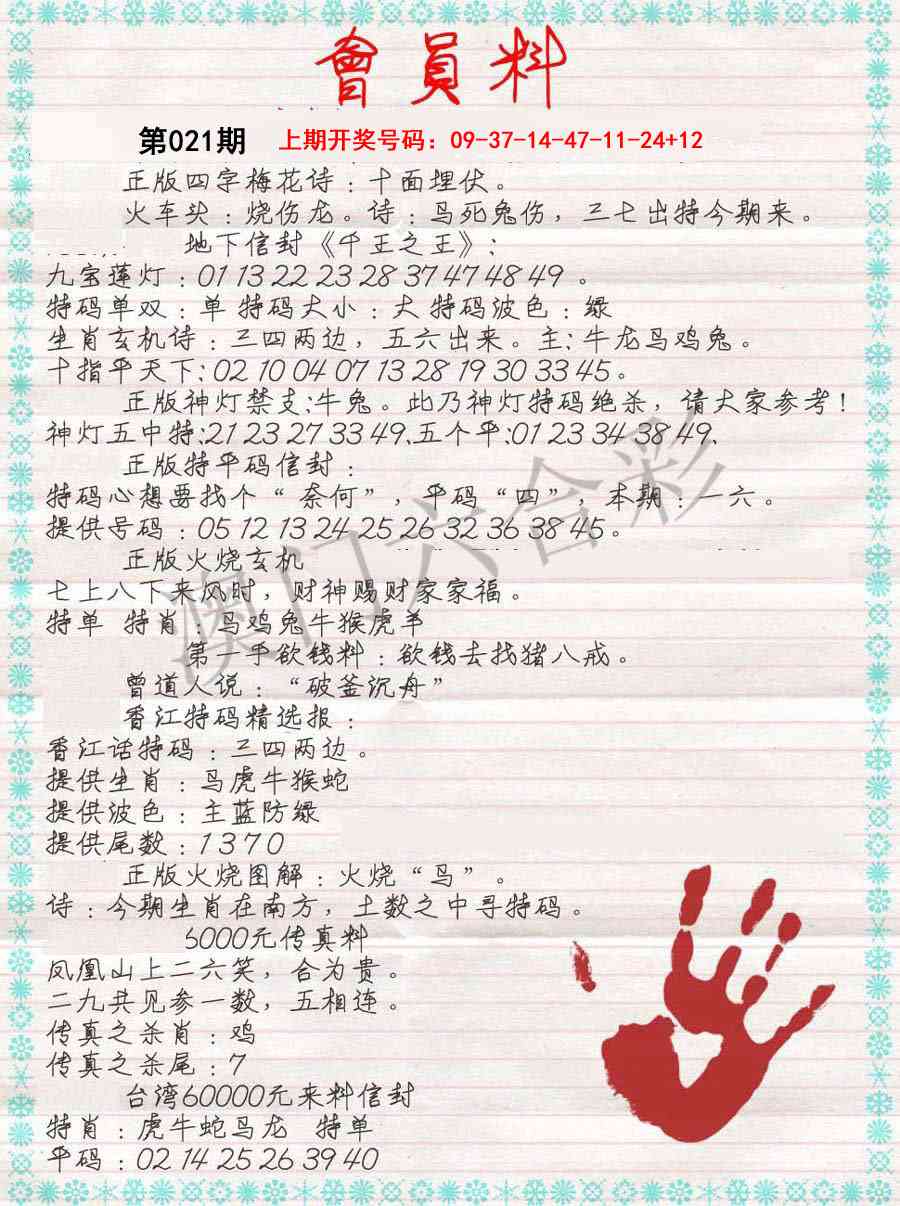 會員料
第021期 上期开奖号码：09-37-14-47-11-24+12
正版四字梅花诗：十面埋伏。
火车头：烧伤龙。诗：鸟死兔伤，三七出特今期来。
地下信封《千王之王》：
九宝莲灯：01 13 22 23 28 37 47 48 49 。
特码单双：单 特码大小：大 特码波色：绿
生肖玄机诗：三四两边，五六出来。主：牛龙鸟鸡兔。
十指平天下：02 10 04 07 13 28 19 30 33 45。
正版神灯禁支：牛兔。此乃神灯特码绝杀，请大家参考！
神灯五中特：21 23 27 33 49、五个平：01 23 34 38 49、
正版特平码信封：
特码心想要找个“奈何”，平码“四”，本期：一六。
提供号码：05 12 13 24 25 26 32 36 38 45。
正版火烧玄机
七上八下来风时，财神赐财家家福。
特单 特肖：鸟鸡兔牛猴虎羊
第一手欲钱料：欲钱去找猪八戒。
曾道人说：“破釜沉舟”
香江特码精选报：
香江话特码：三四两边。
提供生肖：鸟虎牛猴蛇
提供波色：主蓝防绿
提供尾数：1 3 7 0
正版火烧图解：火烧“鸟”。
诗：今期生肖在南方，土数之中寻特码。
6000元传真料
凤凰山上二六笑，合为贵。
二九共见参一数，五相连。
传真之杀肖：鸡
传真之杀尾：7
台湾60000元来料信封
特肖：虎牛蛇鸟龙 特单
平码：02 14 25 26 39 40
澳门六合彩